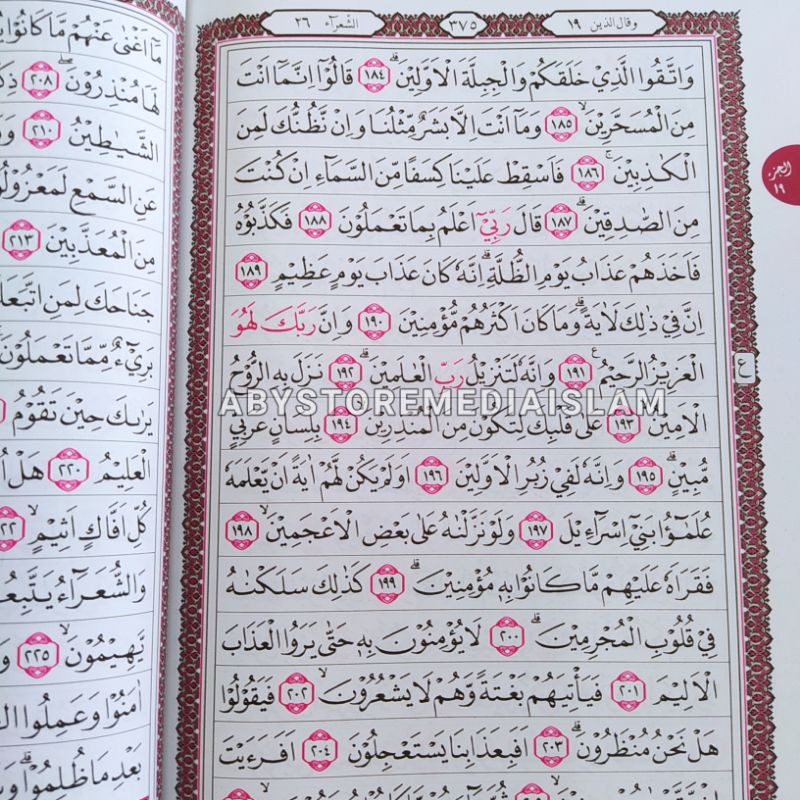 وقال الذين ١٩
٣٧٥
الشعراء ٢٦
وَاتَّقُوا الَّذِيْ خَلَقَكُمْ وَالْجِبِلَّةَ الْاَوَّلِيْنَ ۗ ١٨٤ قَالُوْٓا اِنَّمَآ اَنْتَ
مِنَ الْمُسَحَّرِيْنَ ۙ ١٨٥ وَمَآ اَنْتَ اِلَّا بَشَرٌ مِّثْلُنَا وَاِنْ نَّظُنُّكَ لَمِنَ
الْكٰذِبِيْنَ ۚ ١٨٦ فَاَسْقِطْ عَلَيْنَا كِسَفًا مِّنَ السَّمَاۤءِ اِنْ كُنْتَ
مِنَ الصّٰدِقِيْنَ ۗ ١٨٧ قَالَ رَبِّيْٓ اَعْلَمُ بِمَا تَعْمَلُوْنَ ١٨٨ فَكَذَّبُوْهُ
فَاَخَذَهُمْ عَذَابُ يَوْمِ الظُّلَّةِ ۗ اِنَّهٗ كَانَ عَذَابَ يَوْمٍ عَظِيْمٍ ١٨٩
اِنَّ فِيْ ذٰلِكَ لَاٰيَةً ۗ وَمَا كَانَ اَكْثَرُهُمْ مُّؤْمِنِيْنَ ١٩٠ وَاِنَّ رَبَّكَ لَهُوَ
الْعَزِيْزُ الرَّحِيْمُ ࣖ ١٩١ وَاِنَّهٗ لَتَنْزِيْلُ رَبِّ الْعٰلَمِيْنَ ۗ ١٩٢ نَزَلَ بِهِ الرُّوْحُ
الْاَمِيْنُ ١٩٣ عَلٰى قَلْبِكَ لِتَكُوْنَ مِنَ الْمُنْذِرِيْنَ ١٩٤ بِلِسَانٍ عَرَبِيٍّ
مُّبِيْنٍ ۗ ١٩٥ وَاِنَّهٗ لَفِيْ زُبُرِ الْاَوَّلِيْنَ ١٩٦ اَوَلَمْ يَكُنْ لَّهُمْ اٰيَةً اَنْ يَّعْلَمَهٗ
عُلَمٰۤؤُا بَنِيْٓ اِسْرَاۤءِيْلَ ١٩٧ وَلَوْ نَزَّلْنٰهُ عَلٰى بَعْضِ الْاَعْجَمِيْنَ ۙ ١٩٨
فَقَرَاَهٗ عَلَيْهِمْ مَّا كَانُوْا بِهٖ مُؤْمِنِيْنَ ۗ ١٩٩ كَذٰلِكَ سَلَكْنٰهُ
فِيْ قُلُوْبِ الْمُجْرِمِيْنَ ۗ ٢٠٠ لَا يُؤْمِنُوْنَ بِهٖ حَتّٰى يَرَوُا الْعَذَابَ
الْاَلِيْمَ ٢٠١ فَيَأْتِيَهُمْ بَغْتَةً وَّهُمْ لَا يَشْعُرُوْنَ ۙ ٢٠٢ فَيَقُوْلُوْا
هَلْ نَحْنُ مُنْظَرُوْنَ ۗ ٢٠٣ اَفَبِعَذَابِنَا يَسْتَعْجِلُوْنَ ٢٠٤ اَفَرَءَيْتَ
الجزء
١٩
ع
ABYSTOREMEDIAISLAM
مَآ اَغْنٰى عَنْهُمْ مَّا كَانُوْا
لَهَا مُنْذِرُوْنَ ۖ ٢٠٨
الشَّيٰطِيْنُ ٢١٠
عَنِ السَّمْعِ
مِنَ الْمُعَذَّبِيْنَ ٢١٣
جَنَاحَكَ لِمَنِ
بَرِيْۤءٌ مِّمَّا تَعْمَلُوْنَ
يَرٰىكَ حِيْنَ تَقُوْمُ
الْعَلِيْمُ ٢٢٠ هَلْ
كُلِّ اَفَّاكٍ اَثِيْمٍ ۙ
وَالشُّعَرَاۤءُ
يَّهِيْمُوْنَ ۙ ٢٢٥
اٰمَنُوْا وَعَمِلُوا
بَعْدِ مَا ظُلِمُوْا